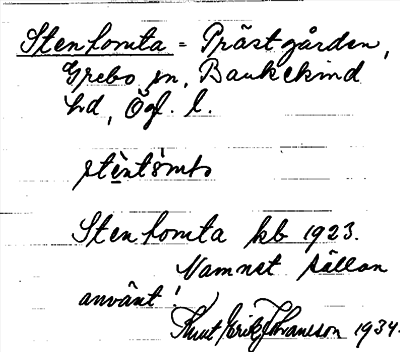 Stentomta = Prästgården,
Grebo sn, Bankekind
hd, Ög. l.
stèntòmta
Stentomta kb 1923.
Namnet sällan
använt!
Knut Erik Johansson 1934.